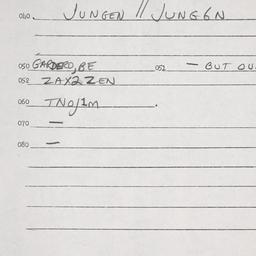 040. JUNGEN // JUNG6N
050 GARDERO,BE 052 — BUT OU
052 ZAX2ZEN
060 TNO/1M .
070 —
080 —